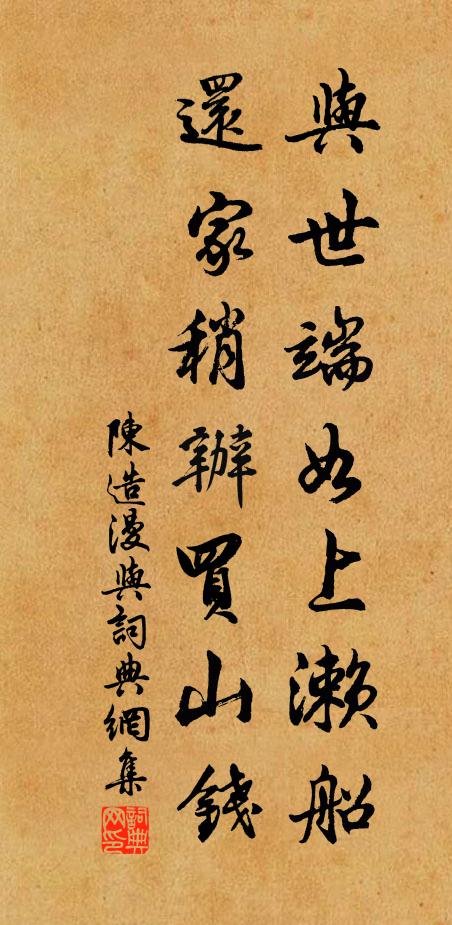 與世端如上瀨船
還家稍辦買山錢
陳造漫與詞典網集
詞典網印